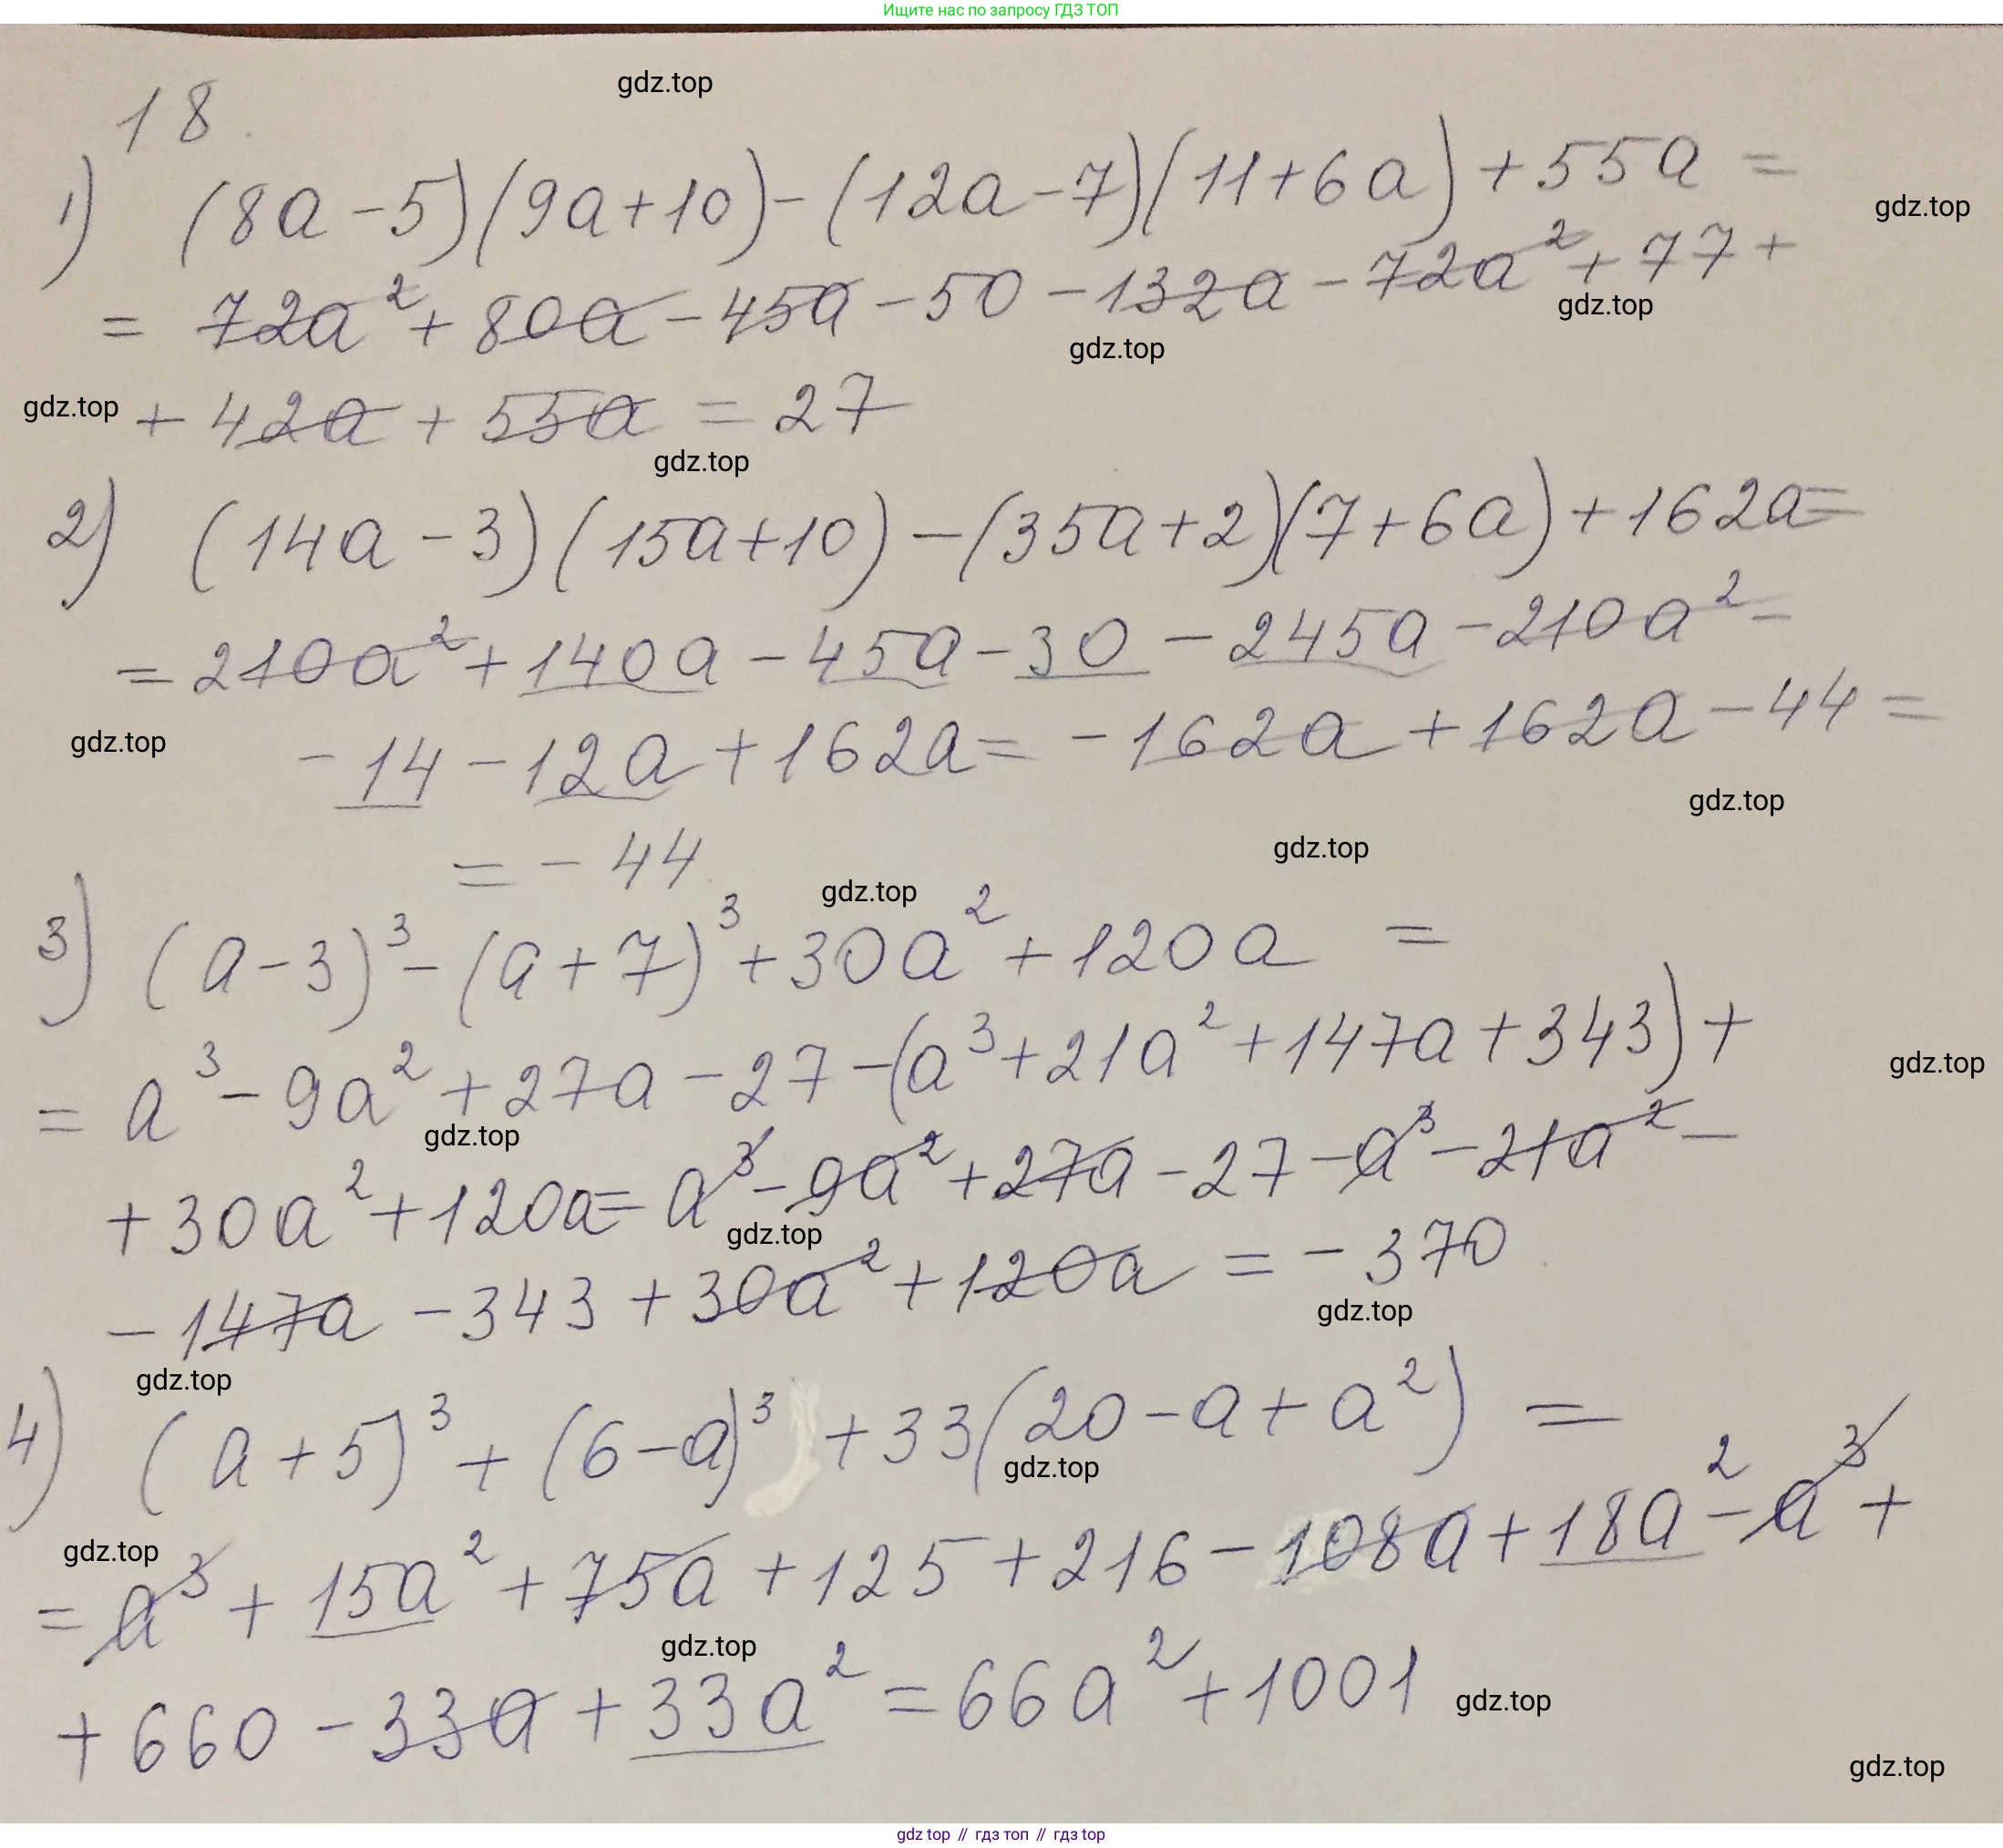 Ищите нас по запросу ГДЗ ТОП
gdz.top
18.
1) (8a-5)(9a+10)-(12a-7)(11+6a)+55a=
gdz.top
= 72a²+80a-45a-50-132a-72a²+77+
gdz.top
gdz.top
gdz.top
+42a+55a=27
gdz.top
2) (14a-3)(15a+10)-(35a+2)(7+6a)+162a=
=210a²+140a-45a-30-245a-210a²-
gdz.top
-14-12a+162a=-162a+162a-44=
gdz.top
=-44
gdz.top
gdz.top
3) (a-3)³-(a+7)³+30a²+120a =
= a³-9a²+27a-27-(a³+21a²+147a+343)+
gdz.top
gdz.top
+30a²+120a=a³-9a²+27a-27-a³-21a²-
gdz.top
-147a-343+30a²+120a=-370
gdz.top
gdz.top
4) (a+5)³+(6-a)³+33(20-a+a²)=
gdz.top
gdz.top
=a³+15a²+75a+125+216-108a+18a²-a³+
gdz.top
+660-33a+33a²=66a²+1001
gdz.top
gdz.top
gdz top // гдз топ // гдз top